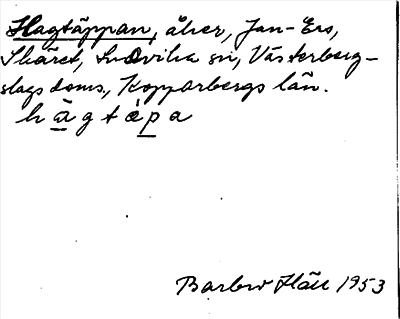 Hagtäppan, åker, Jan-Ers,
Skäret, Ludvika sn, Västerberg-
slags doms., Kopparbergs län.
hàgtápa
Barbro Häll 1953